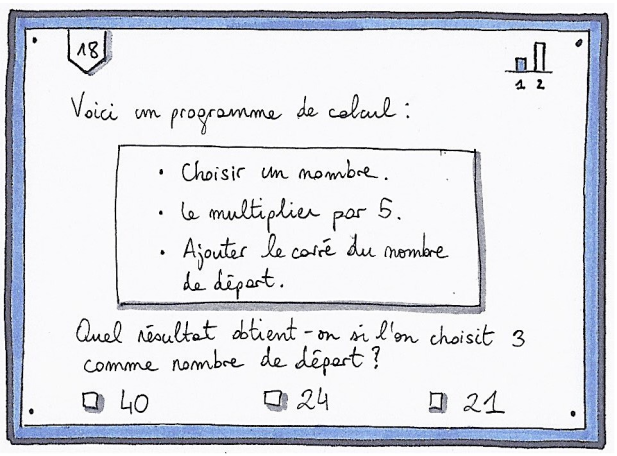 18
1 2
Voici un programme de calcul :
• Choisir un nombre.
• Le multiplier par 5.
• Ajouter le carré du nombre
de départ.
Quel résultat obtient-on si l'on choisit 3
comme nombre de départ ?
☐ 40 ☐ 24 ☐ 21